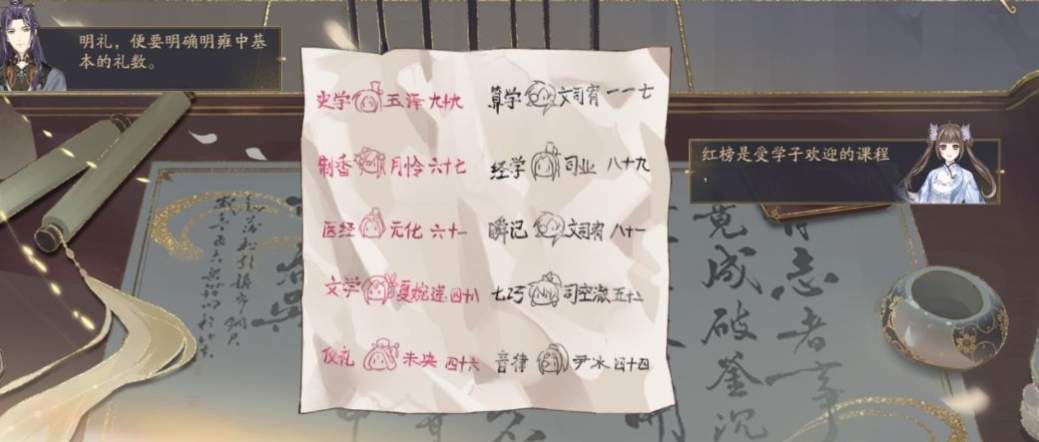 明礼，便要明确明雍中基
本的礼数。
史学 五泽 九十九
算学 文司宥 一一七
制香 月怜 六十七
经学 司业 八十九
医经 元化 六十一
瞬记 文司宥 八十一
文学 夏婉速 四十八
七巧 司空澈 五十二
仪礼 未央 四十六
音律 尹冰 四十四
红榜是受学子欢迎的课程
。
有志者事
竟成破釜沉